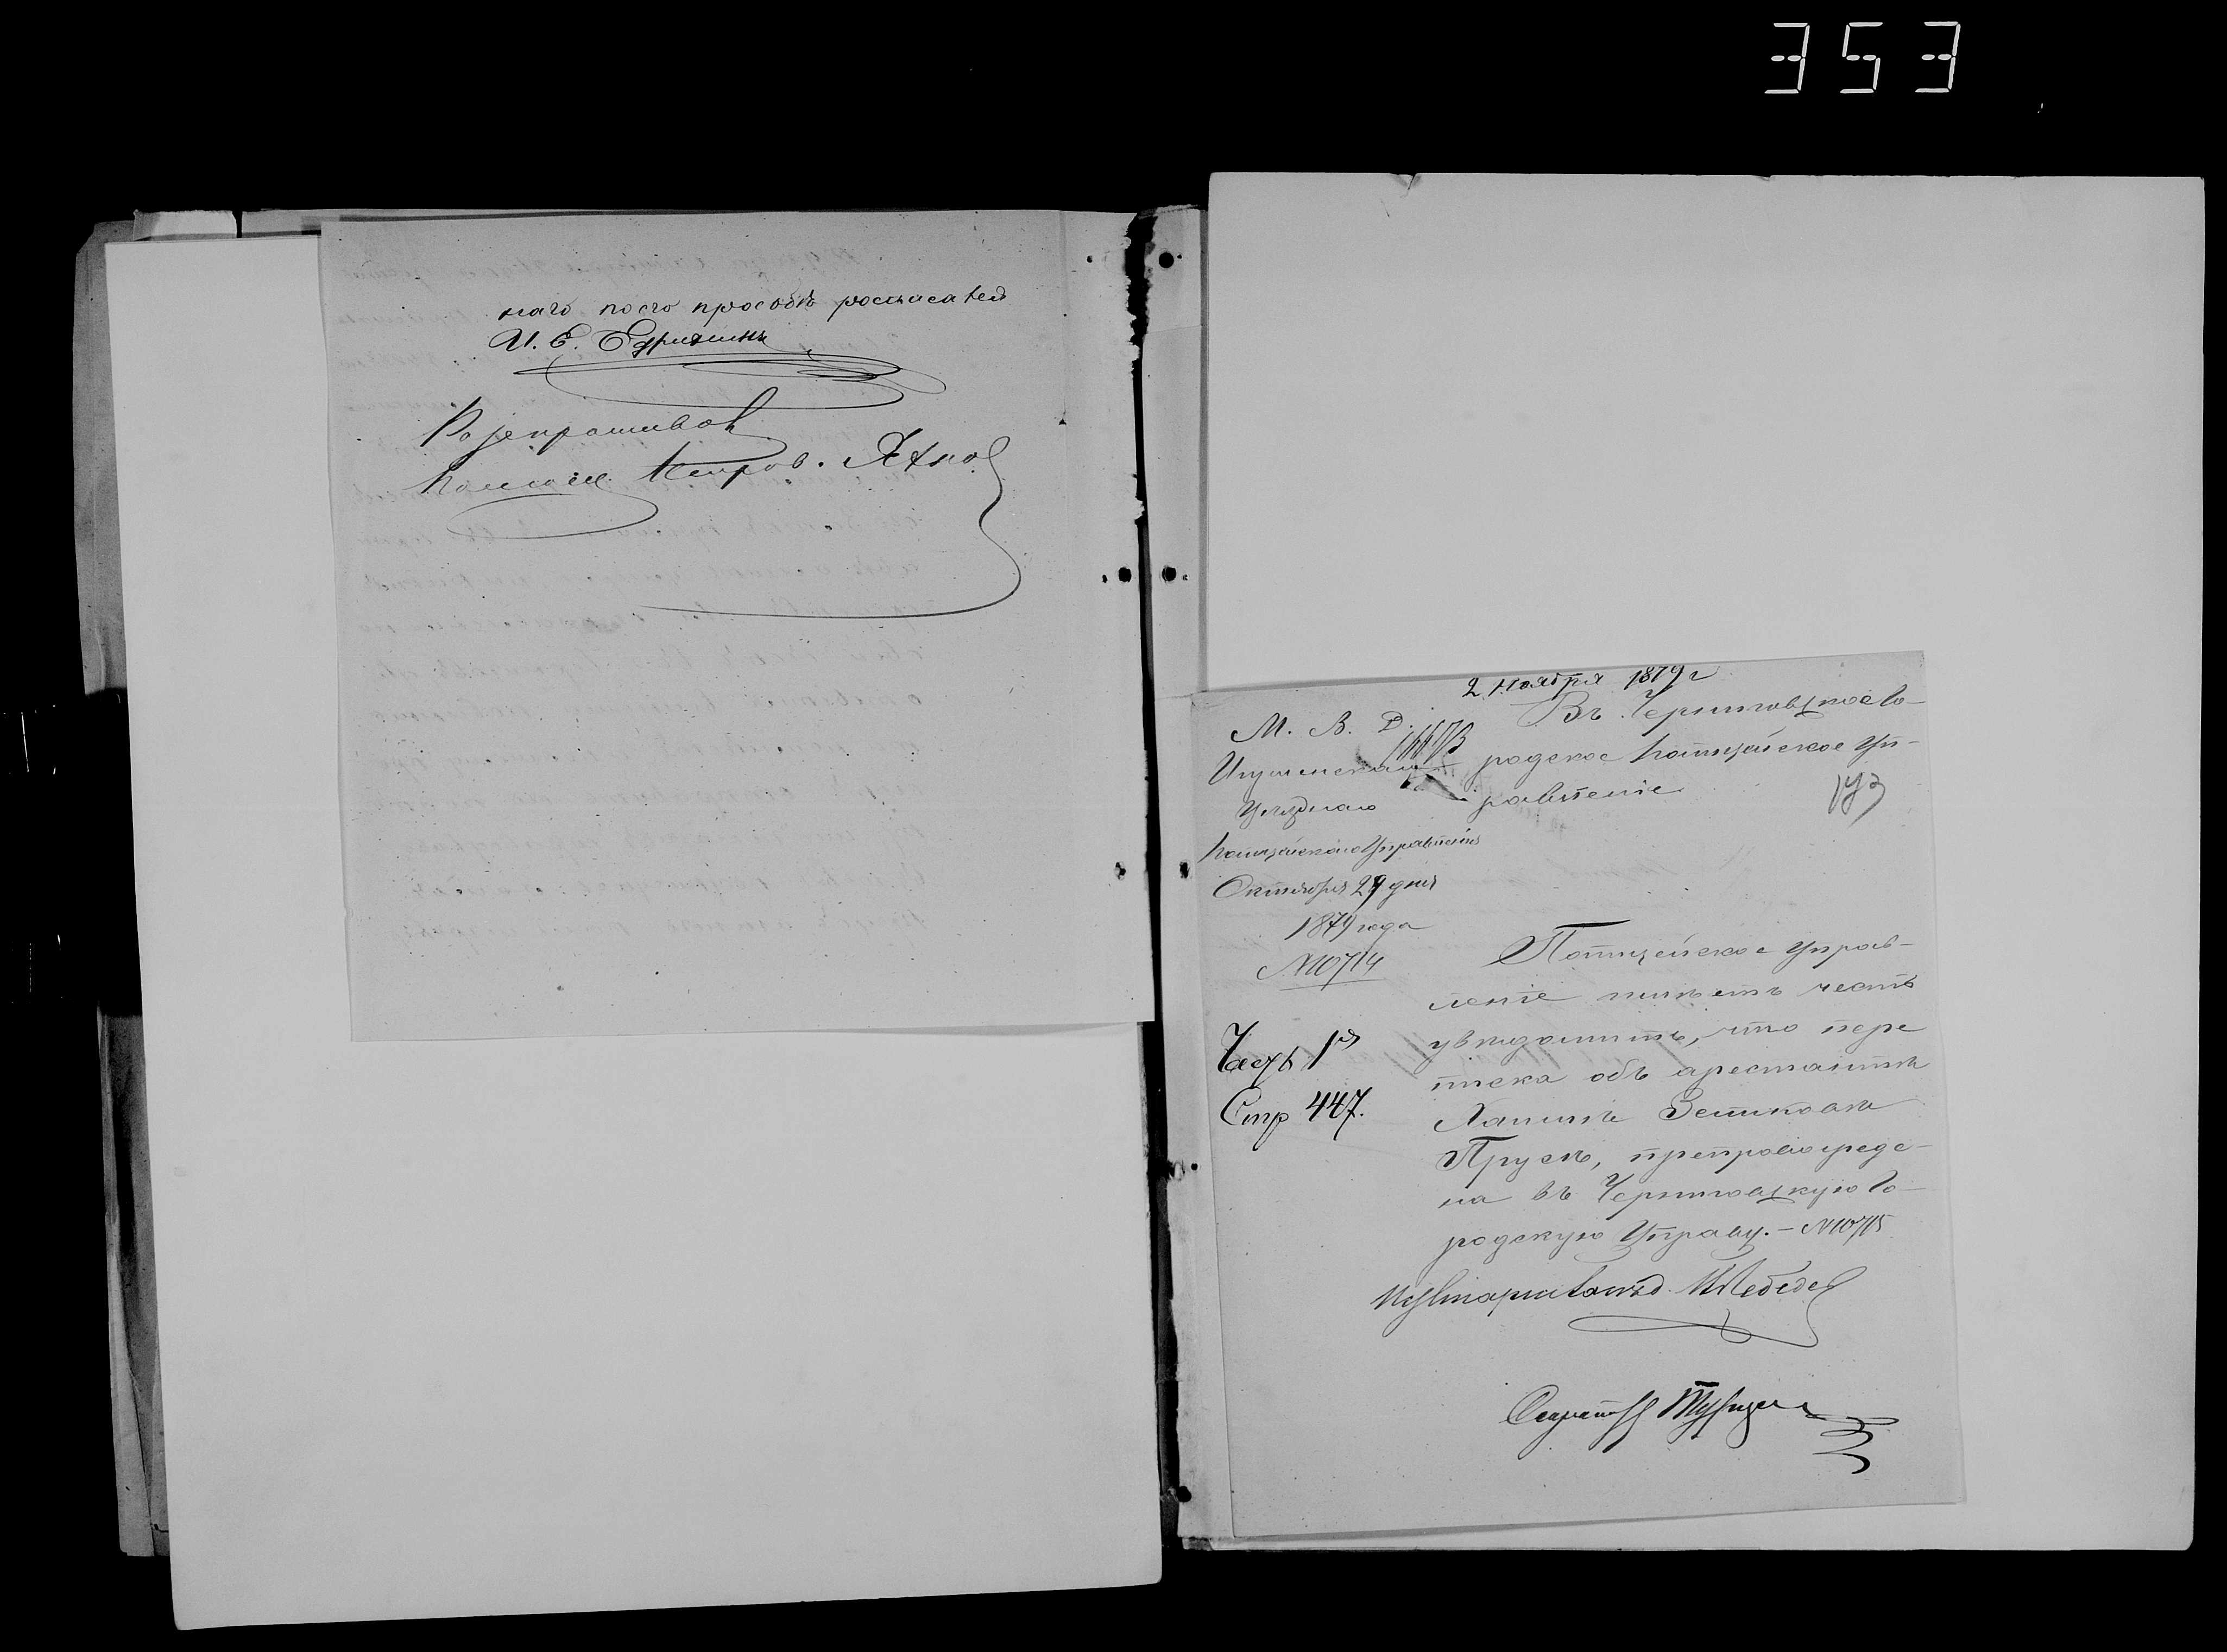 353
наго по его прозьбѣ росписался
И. Е. Едрихинъ
Разспрашивал
Полиц. Надзир.
2 Ноября 1879 г
М. В. Д.
Игуменскаго
Уѣзднаго
Полицейскаго Управленія
Октября 29 дня
1879 года
№ 10714
Часть 1я
Стр 447.
Въ Черниговское Го-
родское Полицейское Уп-
равленіе
Полицейское Управ-
леніе имѣетъ честь
увѣдомить, что пере
писка объ арестантѣ
Хаимѣ Зеликовѣ
Прусѣ, препровожде-
на въ Черниговскую Го-
родскую Управу. — № 10715
Лебедев
Секретарь